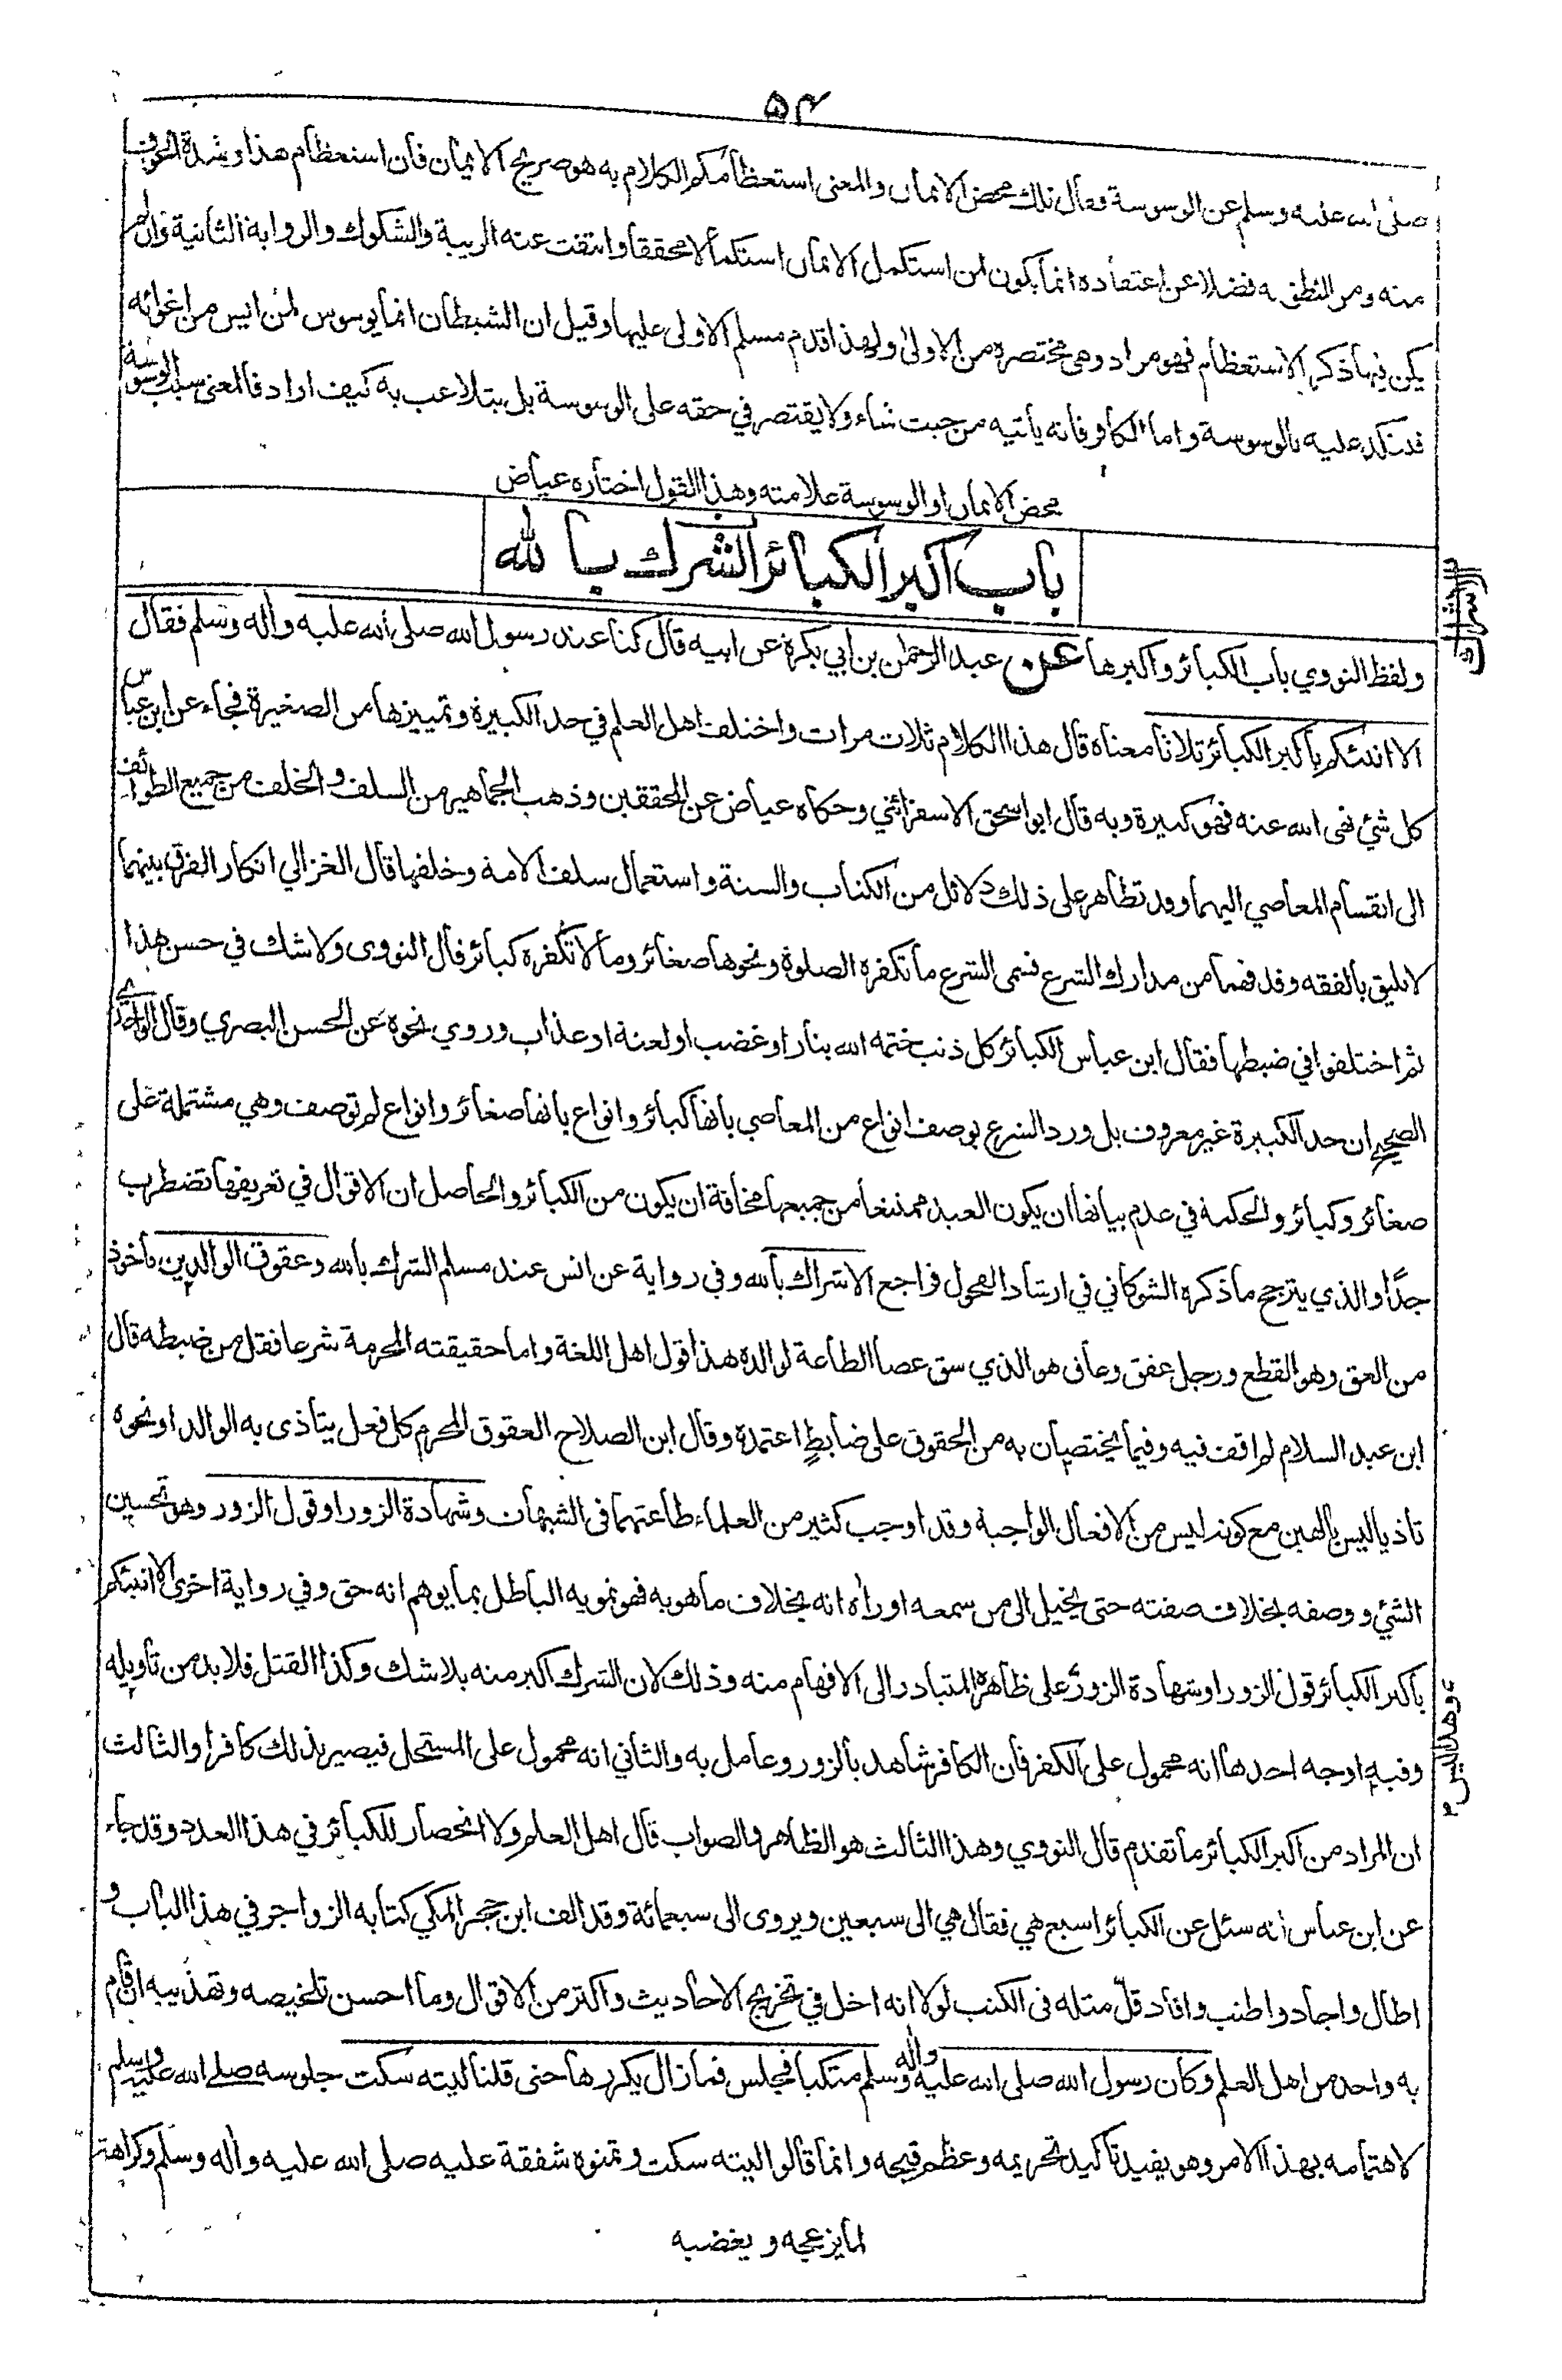 ۵۴
صلى الله عليه وسلم عن الوسوسة فقال ذلك محض الايمان والمعنى استعظامكم الكلام به هو صريح الايمان فان استعظام هذا وشدة الخوف
منه ومن النطق به فضلا عن اعتقاده انما يكون لمن استكمل الايمان استكمالا محققا وانتفت عنه الريبة والشكوك والرواية الثانية وان لم
يكن فيها ذكر الاستعظام فهو مراد وهي مختصرة من الاولى ولهذا قدم مسلم الاولى عليها وقيل ان الشيطان انما يوسوس لمن ايس من اغوائه
فينكد عليه بالوسوسة واما الكافر فانه يأتيه من حيث شاء ولا يقتصر في حقه على الوسوسة بل يتلاعب به كيف اراد فالمعنى سبب الوسوسة
محض الايمان او الوسوسة علامته وهذا القول اختاره عياض
باب اكبر الكبائر الشرك بالله
ولفظ النووي باب الكبائر واكبرها عن عبد الرحمن بن أبي بكرة عن ابيه قال كنا عند رسول الله صلى الله عليه واله وسلم فقال
الا انبئكم بأكبر الكبائر ثلاثا معناه قال هذا الكلام ثلاث مرات واختلف اهل العلم في حد الكبيرة وتمييزها من الصغيرة فجاء عن ابن عباس
كل شئ نهى الله عنه فهو كبيرة وبه قال ابو اسحق الاسفرائني وحكاه عياض عن المحققين وذهب الجماهير من السلف والخلف من جميع الطوائف
الى انقسام المعاصي اليهما وقد تظاهر على ذلك دلائل من الكتاب والسنة واستعمال سلف الامة وخلفها قال الغزالي انكار الفرق بينهما
لا يليق بالفقه وقد فهما من مدارك الشرع فسمى الشرع ما تكفره الصلوة ونحوها صغائر وما لا تكفره كبائر قال النووى ولا شك في حسن هذا
ثم اختلفوا في ضبطها فقال ابن عباس الكبائر كل ذنب ختمه الله بنار او غضب او لعنة او عذاب وروي نحوه عن الحسن البصري وقال الواحدي
الصحيح ان حد الكبيرة غير معروف بل ورد الشرع بوصف انواع من المعاصي بانها كبائر وانواع بانها صغائر وانواع لم توصف وهي مشتملة على
صغائر وكبائر والحكمة في عدم بيانها ان يكون العبد ممتنعا من جميعها مخافة ان يكون من الكبائر والحاصل ان الاقوال في تعريفها تضطرب
جدًا والذي يترجح ما ذكره الشوكاني في ارشاد الفحول فراجع الاشراك بالله وفي رواية عن انس عند مسلم الشرك بالله وعقوق الوالدين مأخوذ
من العق وهو القطع ورجل عقق وعاق هو الذي شق عصا الطاعة لوالده هذا قول اهل اللغة واما حقيقته المحرمة شرعا فقل من ضبطه قال
ابن عبد السلام لم اقف فيه وفيما يختصان به من الحقوق على ضابطٍ اعتمده وقال ابن الصلاح العقوق المحرم كل فعل يتاذى به الوالد او نحوه
تاذيا ليس بالهين مع كونه ليس من الافعال الواجبة وقد اوجب كثير من العلماء طاعتهما فى الشبهات وشهادة الزور او قول الزور وهو تحسين
الشئ ووصفه بخلاف صفته حتى يخيل الى من سمعه او راه انه بخلاف ما هو به فهو تمويه الباطل بما يوهم انه حق وفي رواية اخرى الا انبئكم
باكبر الكبائر قول الزور او شهادة الزور على ظاهره المتبادر الى الافهام منه وذلك لان الشرك اكبر منه بلا شك وكذا القتل فلا بد من تاويله
وفيه اوجه احدها انه محمول على الكفر فان الكافر شاهد بالزور وعامل به والثاني انه محمول على المستحل فيصير بذلك كافرا والثالث
ان المراد من اكبر الكبائر ما تقدم قال النووي وهذا الثالث هو الظاهر والصواب قال اهل العلم ولا انحصار للكبائر في هذا العدد وقد جاء
عن ابن عباس انه سئل عن الكبائر اسبع هي فقال هي الى سبعين ويروى الى سبعمائة وقد الف ابن حجر المكي كتابه الزواجر في هذا الباب و
اطال واجاد واطنب وافاد قلّ مثله فى الكتب لولا انه اخل في تخريج الاحاديث واكثر من الاقوال وما احسن تلخيصه وتهذيبه ان قام
به واحد من اهل العلم وكان رسول الله صلى الله عليه واله وسلم متكيا فجلس فما زال يكررها حتى قلنا ليته سكت جلوسه صلے الله عليه وسلم
لاهتمامه بهذا الامر وهو يفيد تاكيد تحريمه وعظم قبحه وانما قالوا ليته سكت وتمنوه شفقة عليه صلى الله عليه واله وسلم وكراهة
لما يزعجه ويغضبه
الاشراك
وهذا ليس